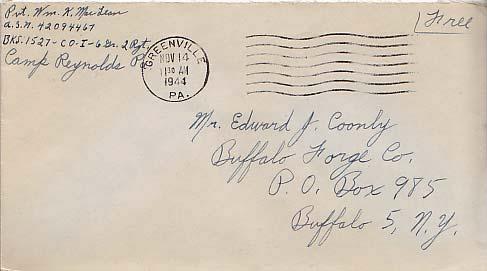 Pvt. Wm. K. MacLean
A.S.N. 42094467
BKS. 1527-CO-I-6 Gr. 2 Rgt.
Camp Reynolds Pa.
GREENVILLE
NOV 14
11 30 AM
1944
PA.
Free
Mr. Edward J. Coonly
Buffalo Forge Co.
P.O. Box 985
Buffalo 5, N.Y.